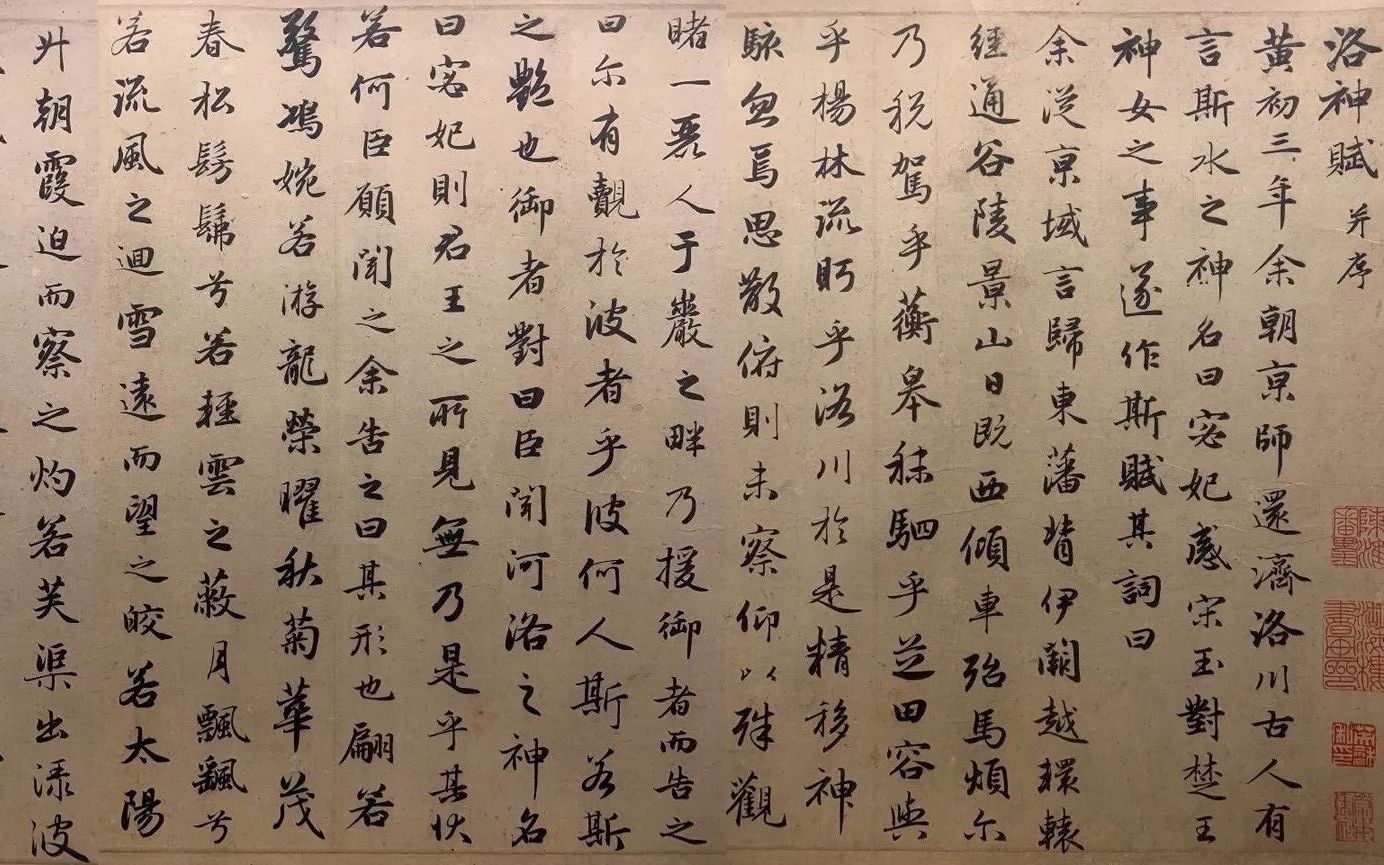 洛神賦并序
黃初三年余朝京師還濟洛川古人有
言斯水之神名曰宓妃感宋玉對楚王
神女之事遂作斯賦其詞曰
余從京域言歸東藩背伊闕越轘轅
經通谷陵景山日既西傾車殆馬煩尔
乃稅駕乎蘅皋秣駟乎芝田容與
乎楊林流眄乎洛川於是精移神
駭忽焉思散俯則未察仰以殊觀
睹一麗人于巖之畔乃援御者而告之
曰尔有觀於彼者乎彼何人斯若斯
之艷也御者對曰臣聞河洛之神名
曰宓妃則君王之所見無乃是乎其狀
若何臣願聞之余告之曰其形也翩若
驚鴻婉若游龍榮曜秋菊華茂
春松髣髴兮若輕雲之蔽月飄飖兮
若流風之迴雪遠而望之皎若太陽
升朝霞迫而察之灼若芙渠出淥波